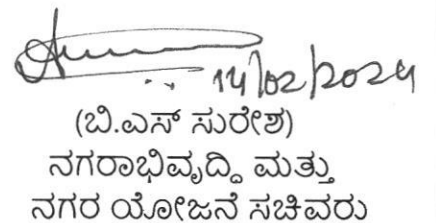 14/02/2024
(ಬಿ.ಎಸ್ ಸುರೇಶ)
ನಗರಾಭಿವೃದ್ದಿ ಮತ್ತು
ನಗರ ಯೋಜನೆ ಸಚಿವರು